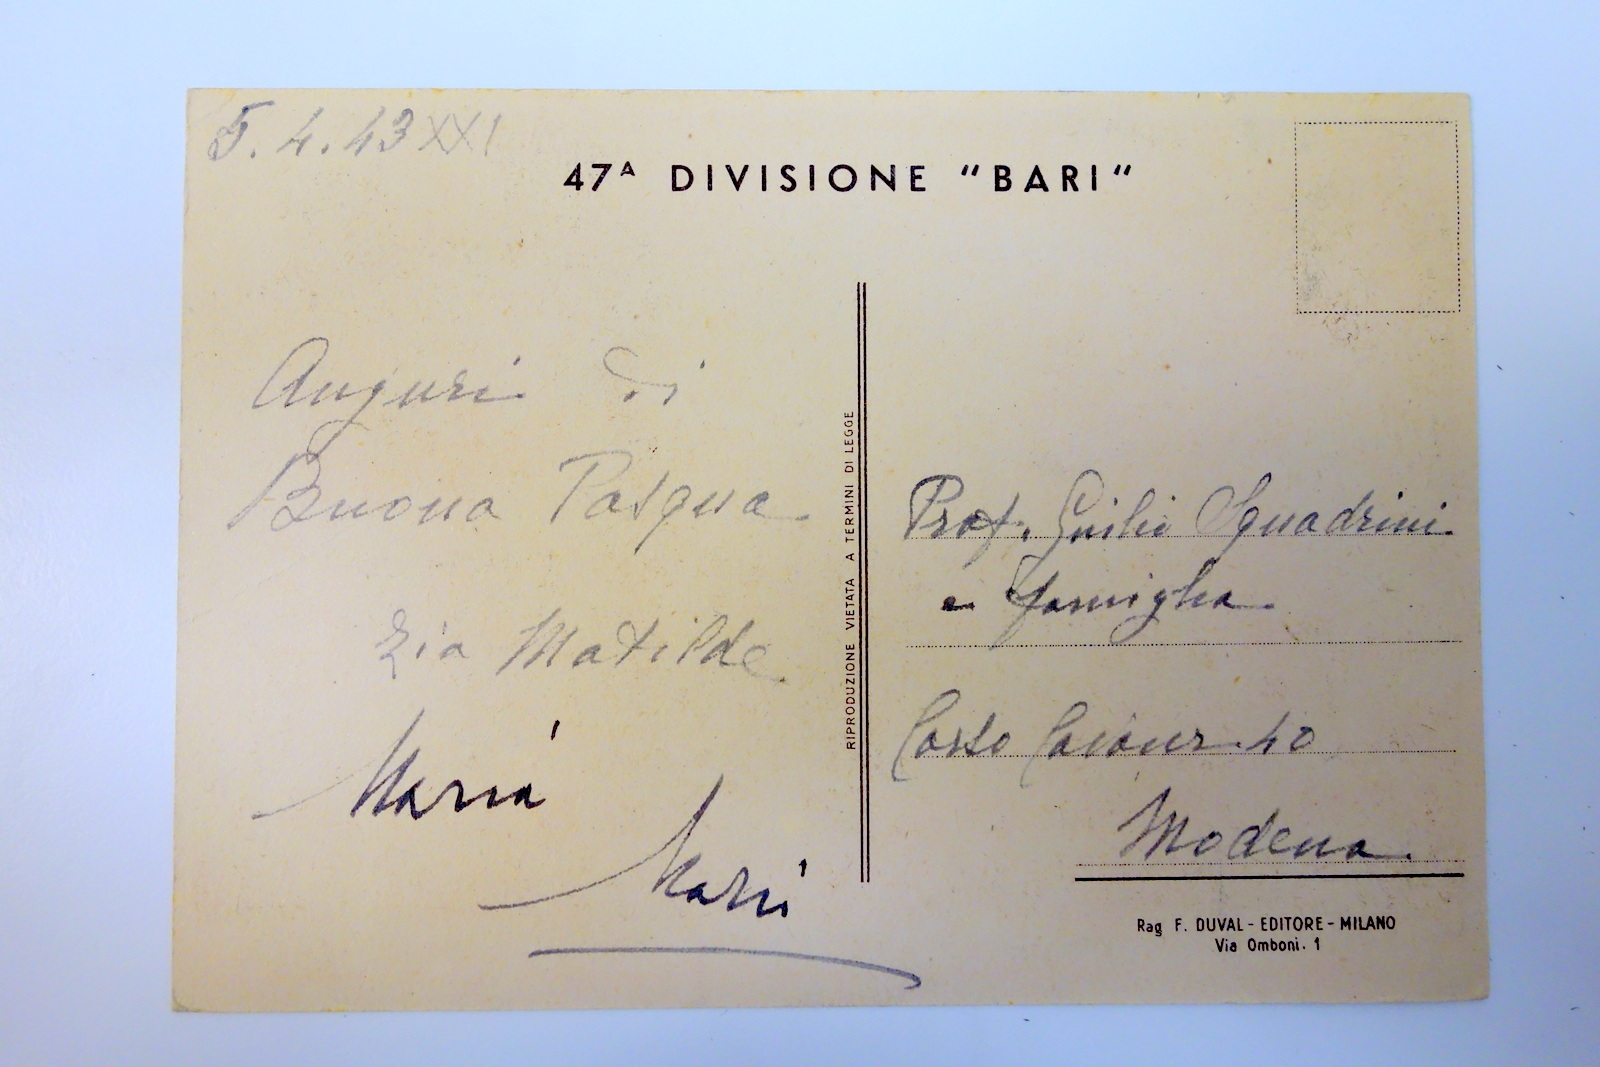 5.4.43 XXI
47ᴬ DIVISIONE "BARI"
Auguri di
Buona Pasqua
Zia Matilde
Maria
Mari
RIPRODUZIONE VIETATA A TERMINI DI LEGGE
Prof. Guilio Squadrini
e famiglia
Corso Cavour 40
Modena
Rag F. DUVAL - EDITORE - MILANO
Via Omboni. 1